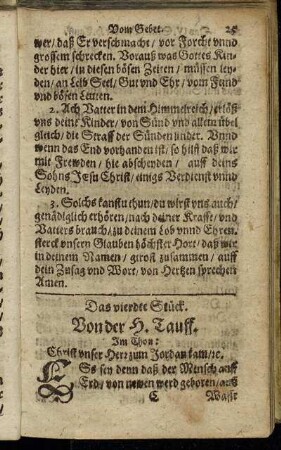 Vom Gebet. 25
wer/ daß Er verschmachte/ vor Forcht vnnd
grossem schrecken. Vorauß was Gottes Kin-
der hier/ in diesen bösen Zeiten/ müssen ley-
den/ an Leib Seel/ Gut vnd Ehr/ vom Feind
vnd bösen Leuten.
2. Ach Vatter in dem Himmelreich/ erlöß
vns deine Kinder/ von Sünd vnd allem übel
gleich/ die Straff der Sünden linder. Vnnd
wenn das End vorhanden ist/ so hilff daß wir
mit Frewden/ hie abscheyden/ auff deins
Sohns JEsu Christ/ einigs Verdienst vnnd
Leyden.
3. Solchs kanstu thun/ du wirst vns auch/
genädiglich erhören/ nach deiner Krafft/ vnd
Vatters brauch/ zu deinem Lob vnnd Ehren.
sterck vnsern Glauben höchster Hort/ daß wir
in deinem Namen/ getrost zusammen/ auff
dein Zusag vnd Wort/ von Hertzen sprechen
Amen.
Das vierdte Stück.
Von der H. Tauff.
Im Thon:
Christ vnser Herr zum Jordan kam/ ꝛc.
ES sey denn daß der Mensch auff
Erd/ von newen werd geboren/ auß
C Wasser